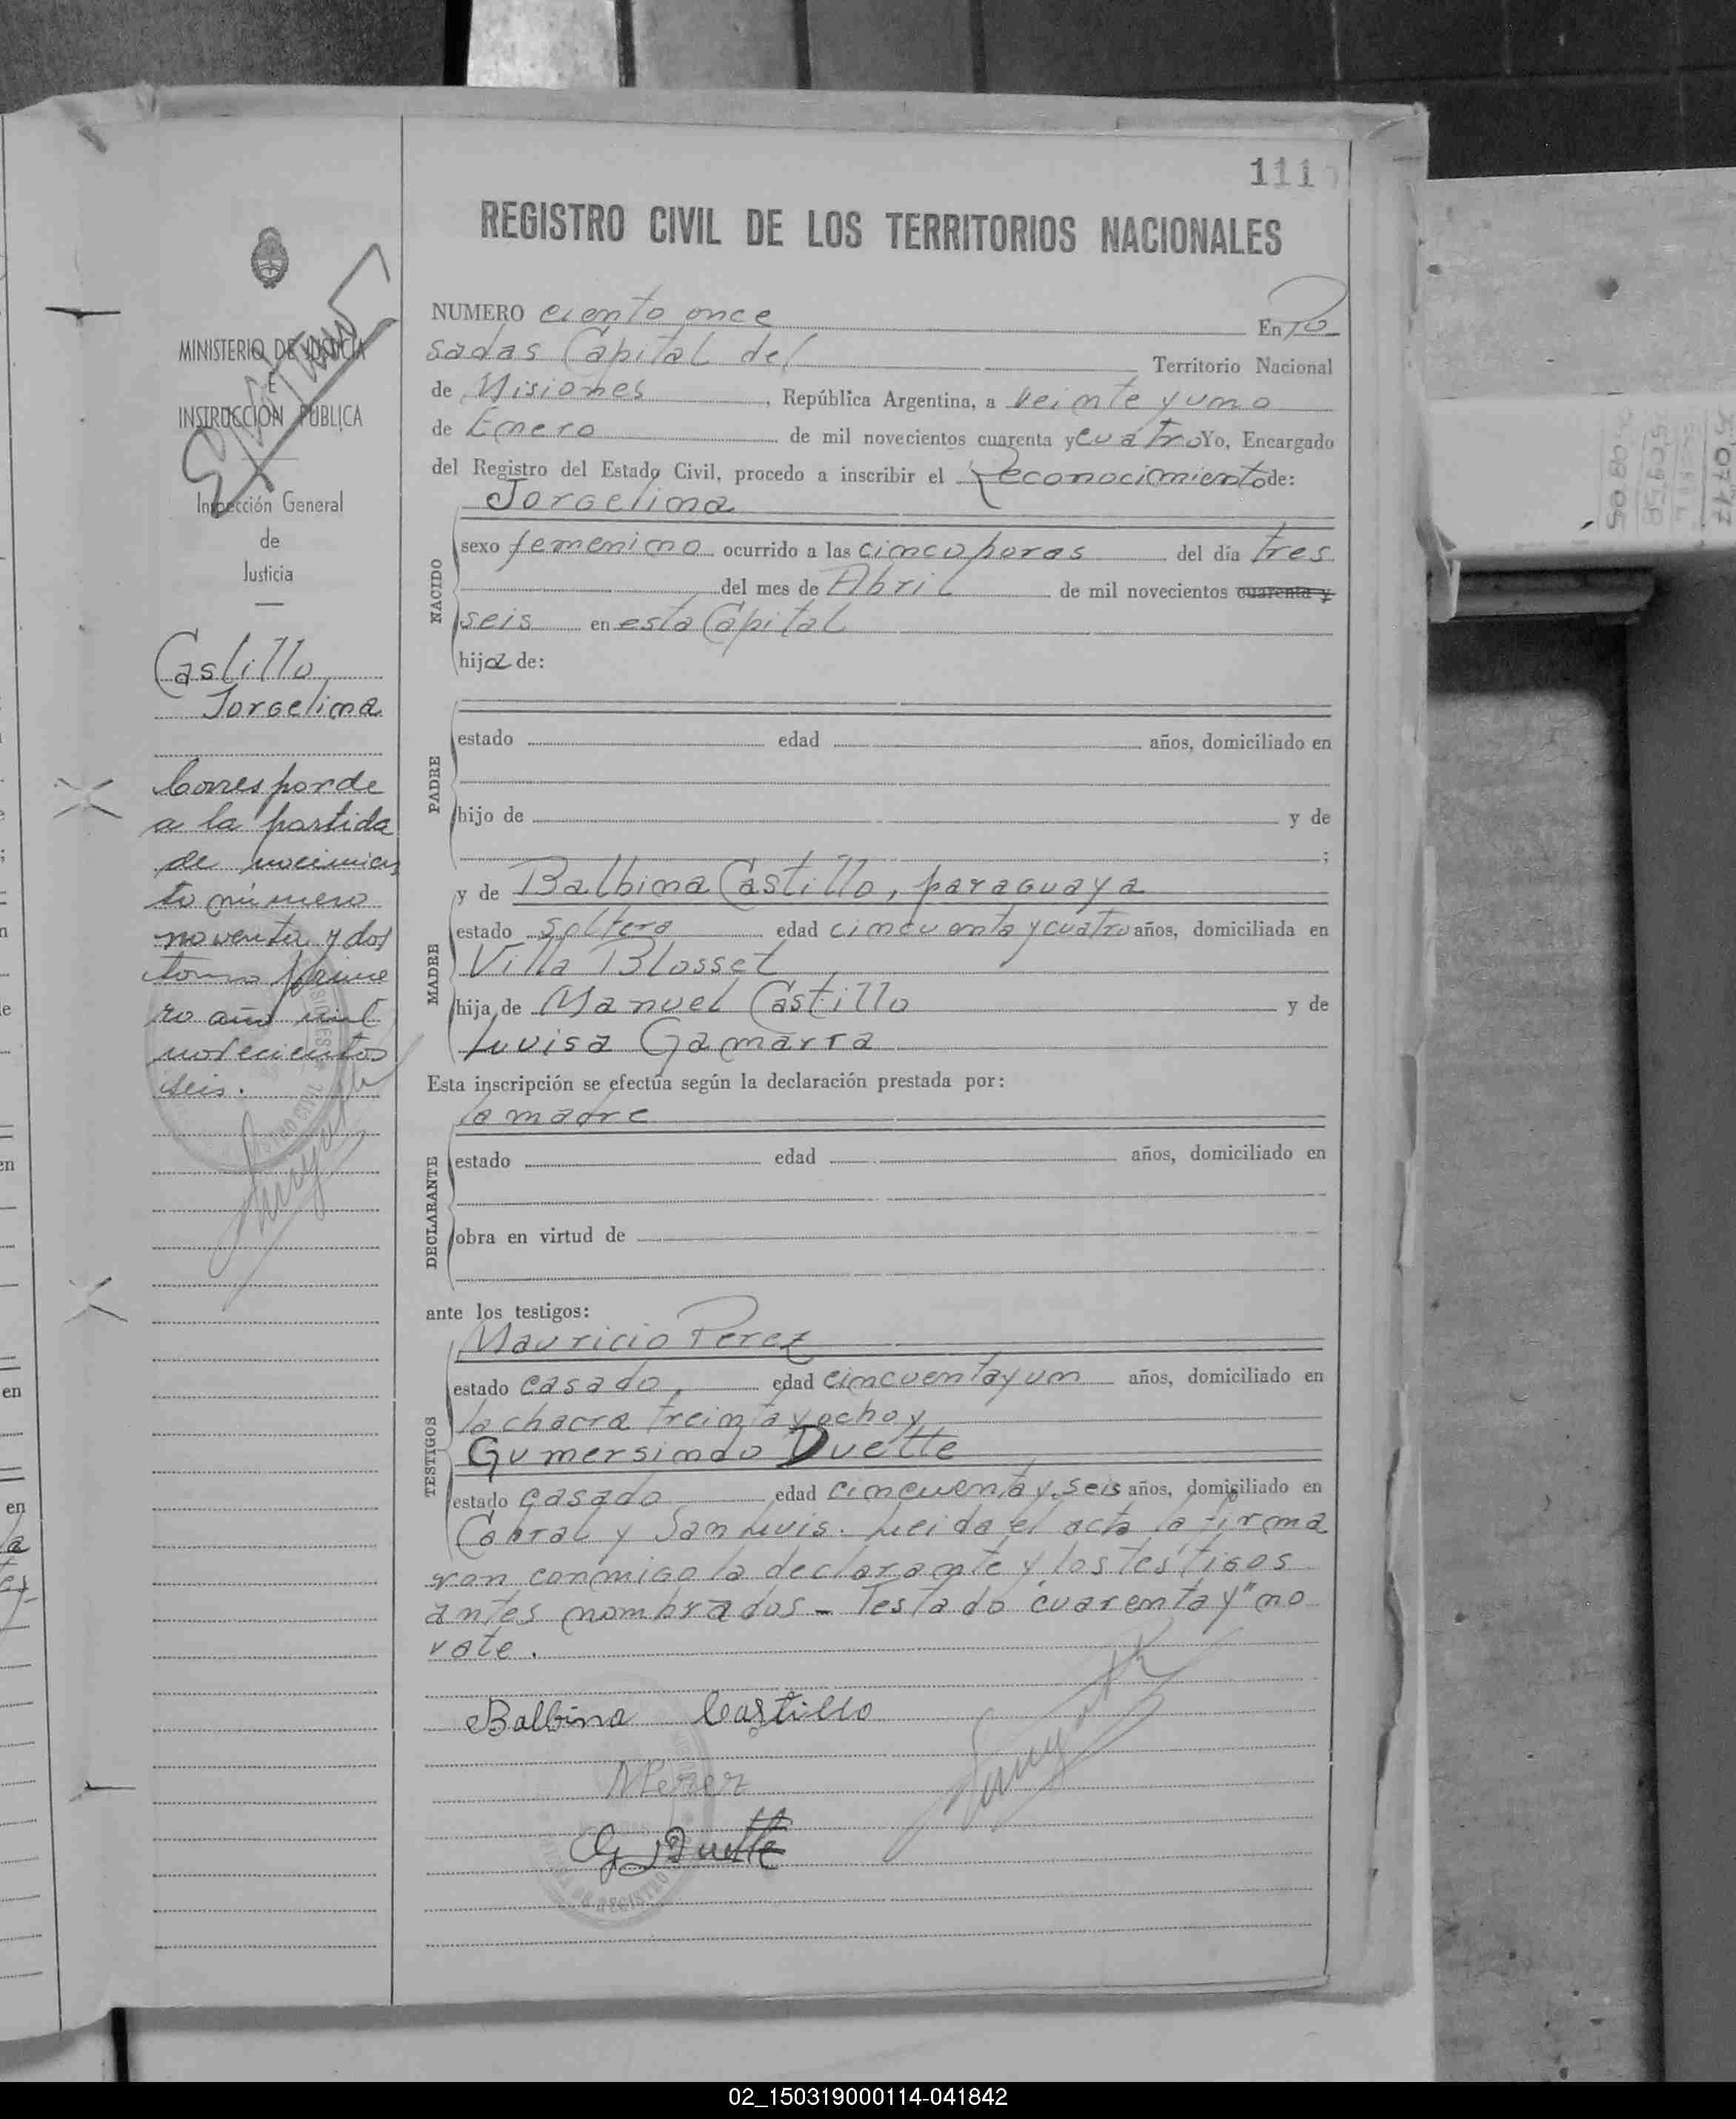 111
REGISTRO CIVIL DE LOS TERRITORIOS NACIONALES
NUMERO ciento once En Po
sadas Capital del Territorio Nacional
de Misiones, República Argentina, a veinte y uno
de Enero de mil novecientos cuarenta y cuatro Yo, Encargado
del Registro del Estado Civil, procedo a inscribir el Reconocimiento de:
NACIDO
Jorgelina
sexo femenino ocurrido a las cinco horas del día tres
del mes de Abril de mil novecientos cuarenta y
seis en esta Capital
hija de:
PADRE
estado edad años, domiciliado en
hijo de y de
;
MADRE
y de Balbina Castillo, paraguaya
estado soltera edad cincuenta y cuatro años, domiciliada en
Villa Blosset
hija de Manuel Castillo y de
Luisa Gamarra
Esta inscripción se efectúa según la declaración prestada por:
DECLARANTE
la madre
estado edad años, domiciliado en
obra en virtud de
ante los testigos:
TESTIGOS
Mauricio Perez
estado casado, edad cincuenta y un años, domiciliado en
la chacra treinta y ocho y
Gumersindo Duette
estado casado edad cincuenta y seis años, domiciliado en
Cabral y San Luis. Leida el acta la firma
ron conmigo la declarante y los testigos
antes nombrados - Testado "cuarenta y" no
vale.
Balbina Castillo
MPerez
G Duette
MINISTERIO DE JUSTICIA
E
INSTRUCCIÓN PÚBLICA
Inspección General
de
Justicia
Castillo
Jorgelina
Corresponde
a la partida
de nacimien
to número
noventa y dos
tomo prime
ro año mil
novecientos
seis.
02_150319000114-041842